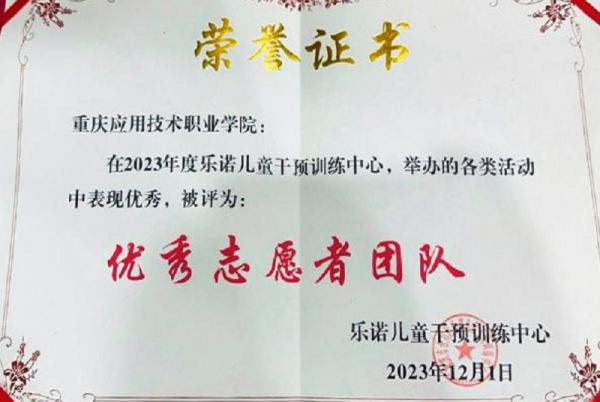 荣誉证书
重庆应用技术职业学院：
在2023年度乐诺儿童干预训练中心，举办的各类活动
中表现优秀，被评为：
优秀志愿者团队
乐诺儿童干预训练中心
2023年12月1日